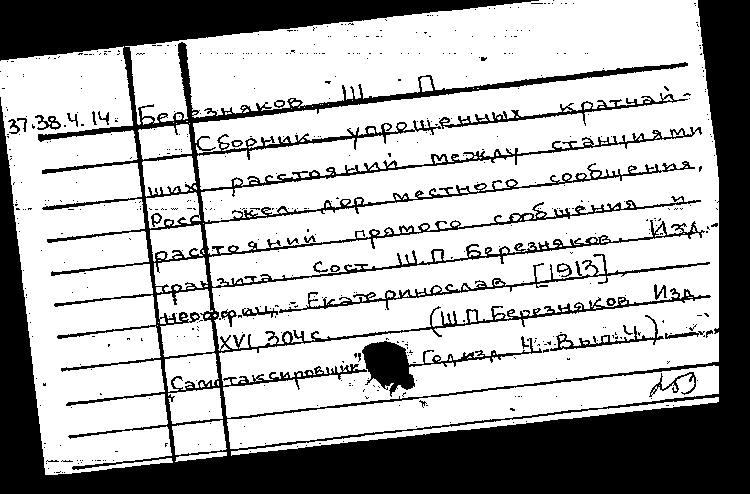 37.38.4.14. Березняков, Ш. П.
Сборник упрощенных кратчай-
ших расстояний между станциями
Росс. жел. дор. местного сообщения,
расстояний прямого сообщения и
транзита. Сост. Ш.П. Березняков. Изд.
неофиц. - Екатеринослав, [1913].
XVI, 304 с. (Ш.П. Березняков. Изд.
"Самотаксировщик" Год изд. 4. Вып. 4.)